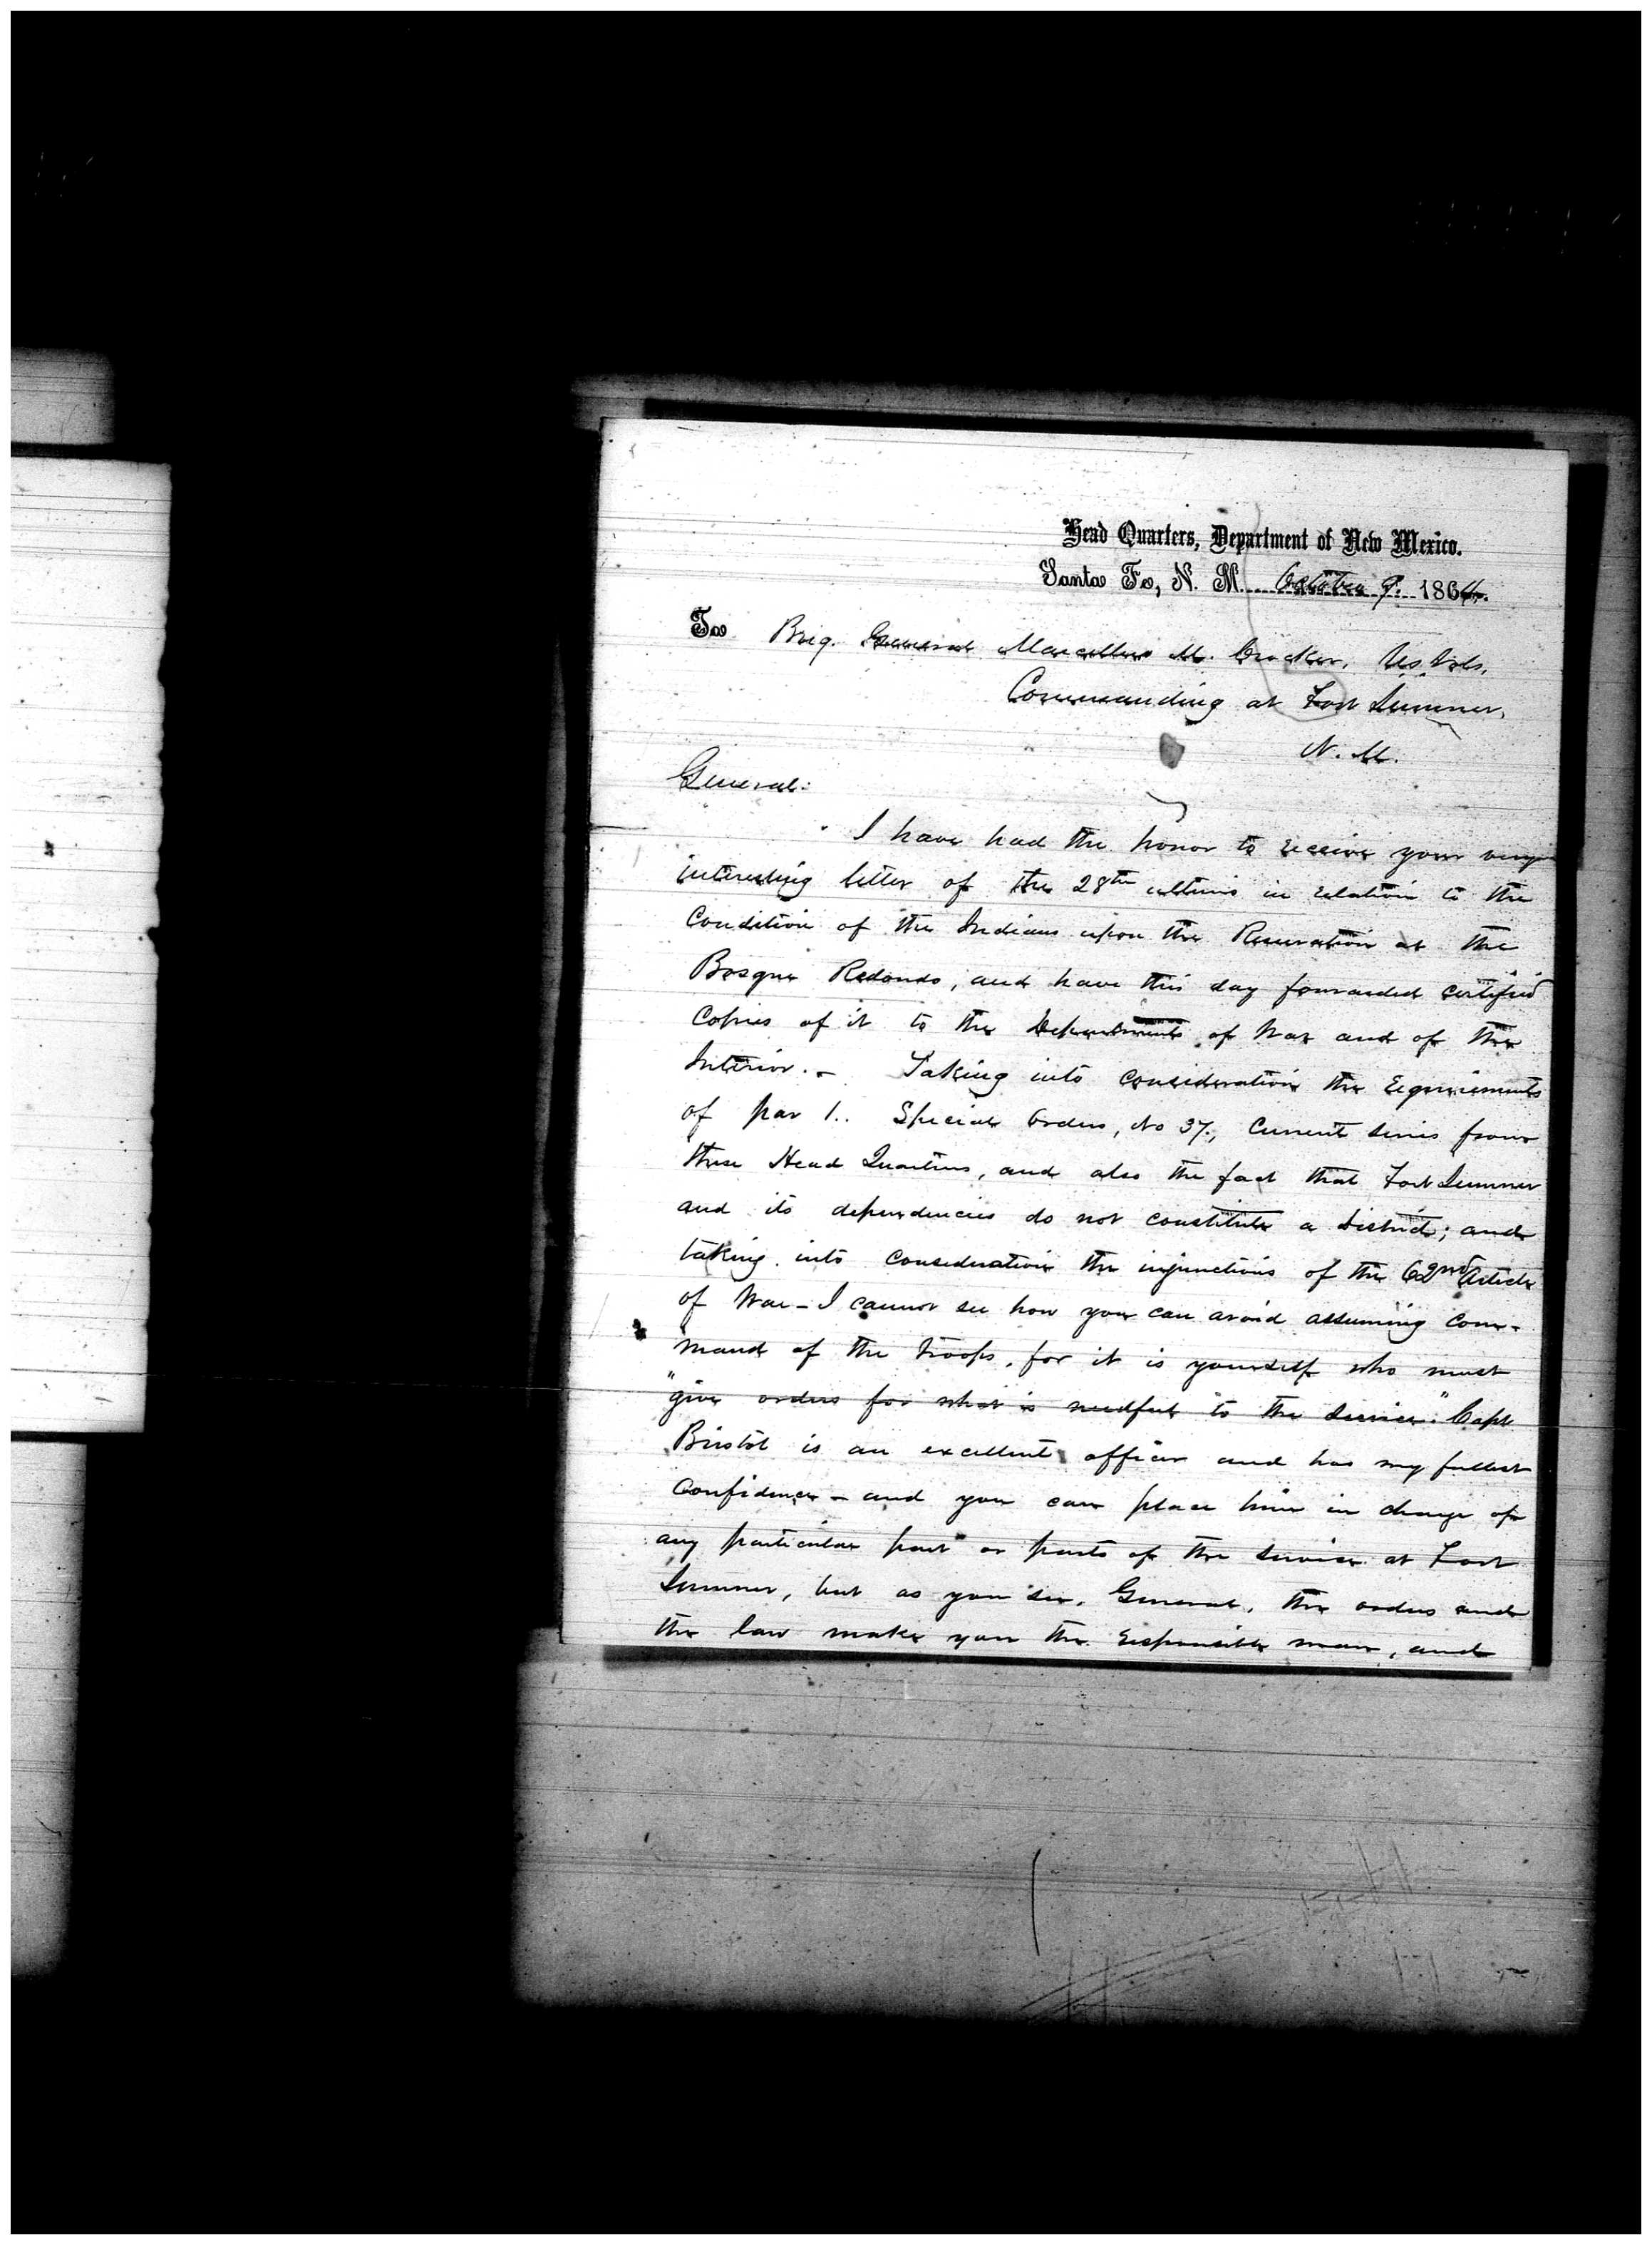 Head Quarters, Department of New Mexico.
Santa Fe, N. M. October 9. 1864.
To Brig. General Marcellus M. Crocker, U.S. Vols,
Commanding at Fort Sumner,
N. M.
General:
I have had the honor to receive your very
interesting letter of the 28th ultimo in relation to the
Condition of the Indians upon the Reservation at the
Bosque Redondo, and have this day forwarded certified
Copies of it to the Departments of War and of the
Interior. - Taking into consideration the requirements
of par 1.. Special Orders, No 37, Current series from
these Head Quarters, and also the fact that Fort Sumner
and its dependencies do not constitute a District; and
taking into consideration the injunctions of the 62nd Article
of War - I cannot see how you can avoid assuming com-
mand of the troops, for it is yourself who must
"give orders for what is needful to the service." Capt
Bristol is an excellent officer and has my fullest
Confidence - and you can place him in charge of
any particular part or parts of the service at Fort
Sumner, but as you see, General, the orders and
the law make you the responsible man, and